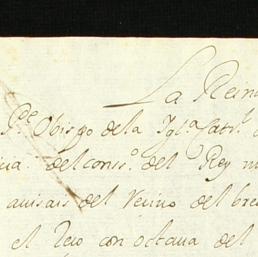 La Reina
Rdo Obispo dela Iglª Catˡ. d
cia. del consº. del Rey mi
avisais del Recivo del bre
el Rezo con octava del